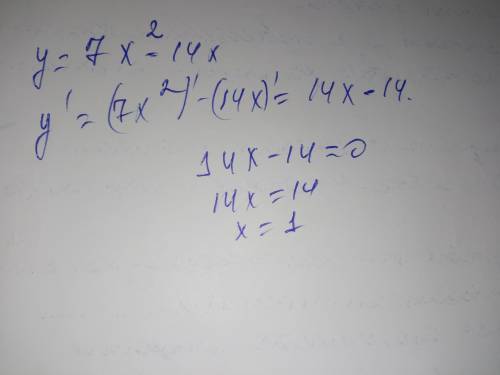 y = 7x² - 14x
y' = (7x²)' - (14x)' = 14x - 14.
14x - 14 = 0
14x = 14
x = 1